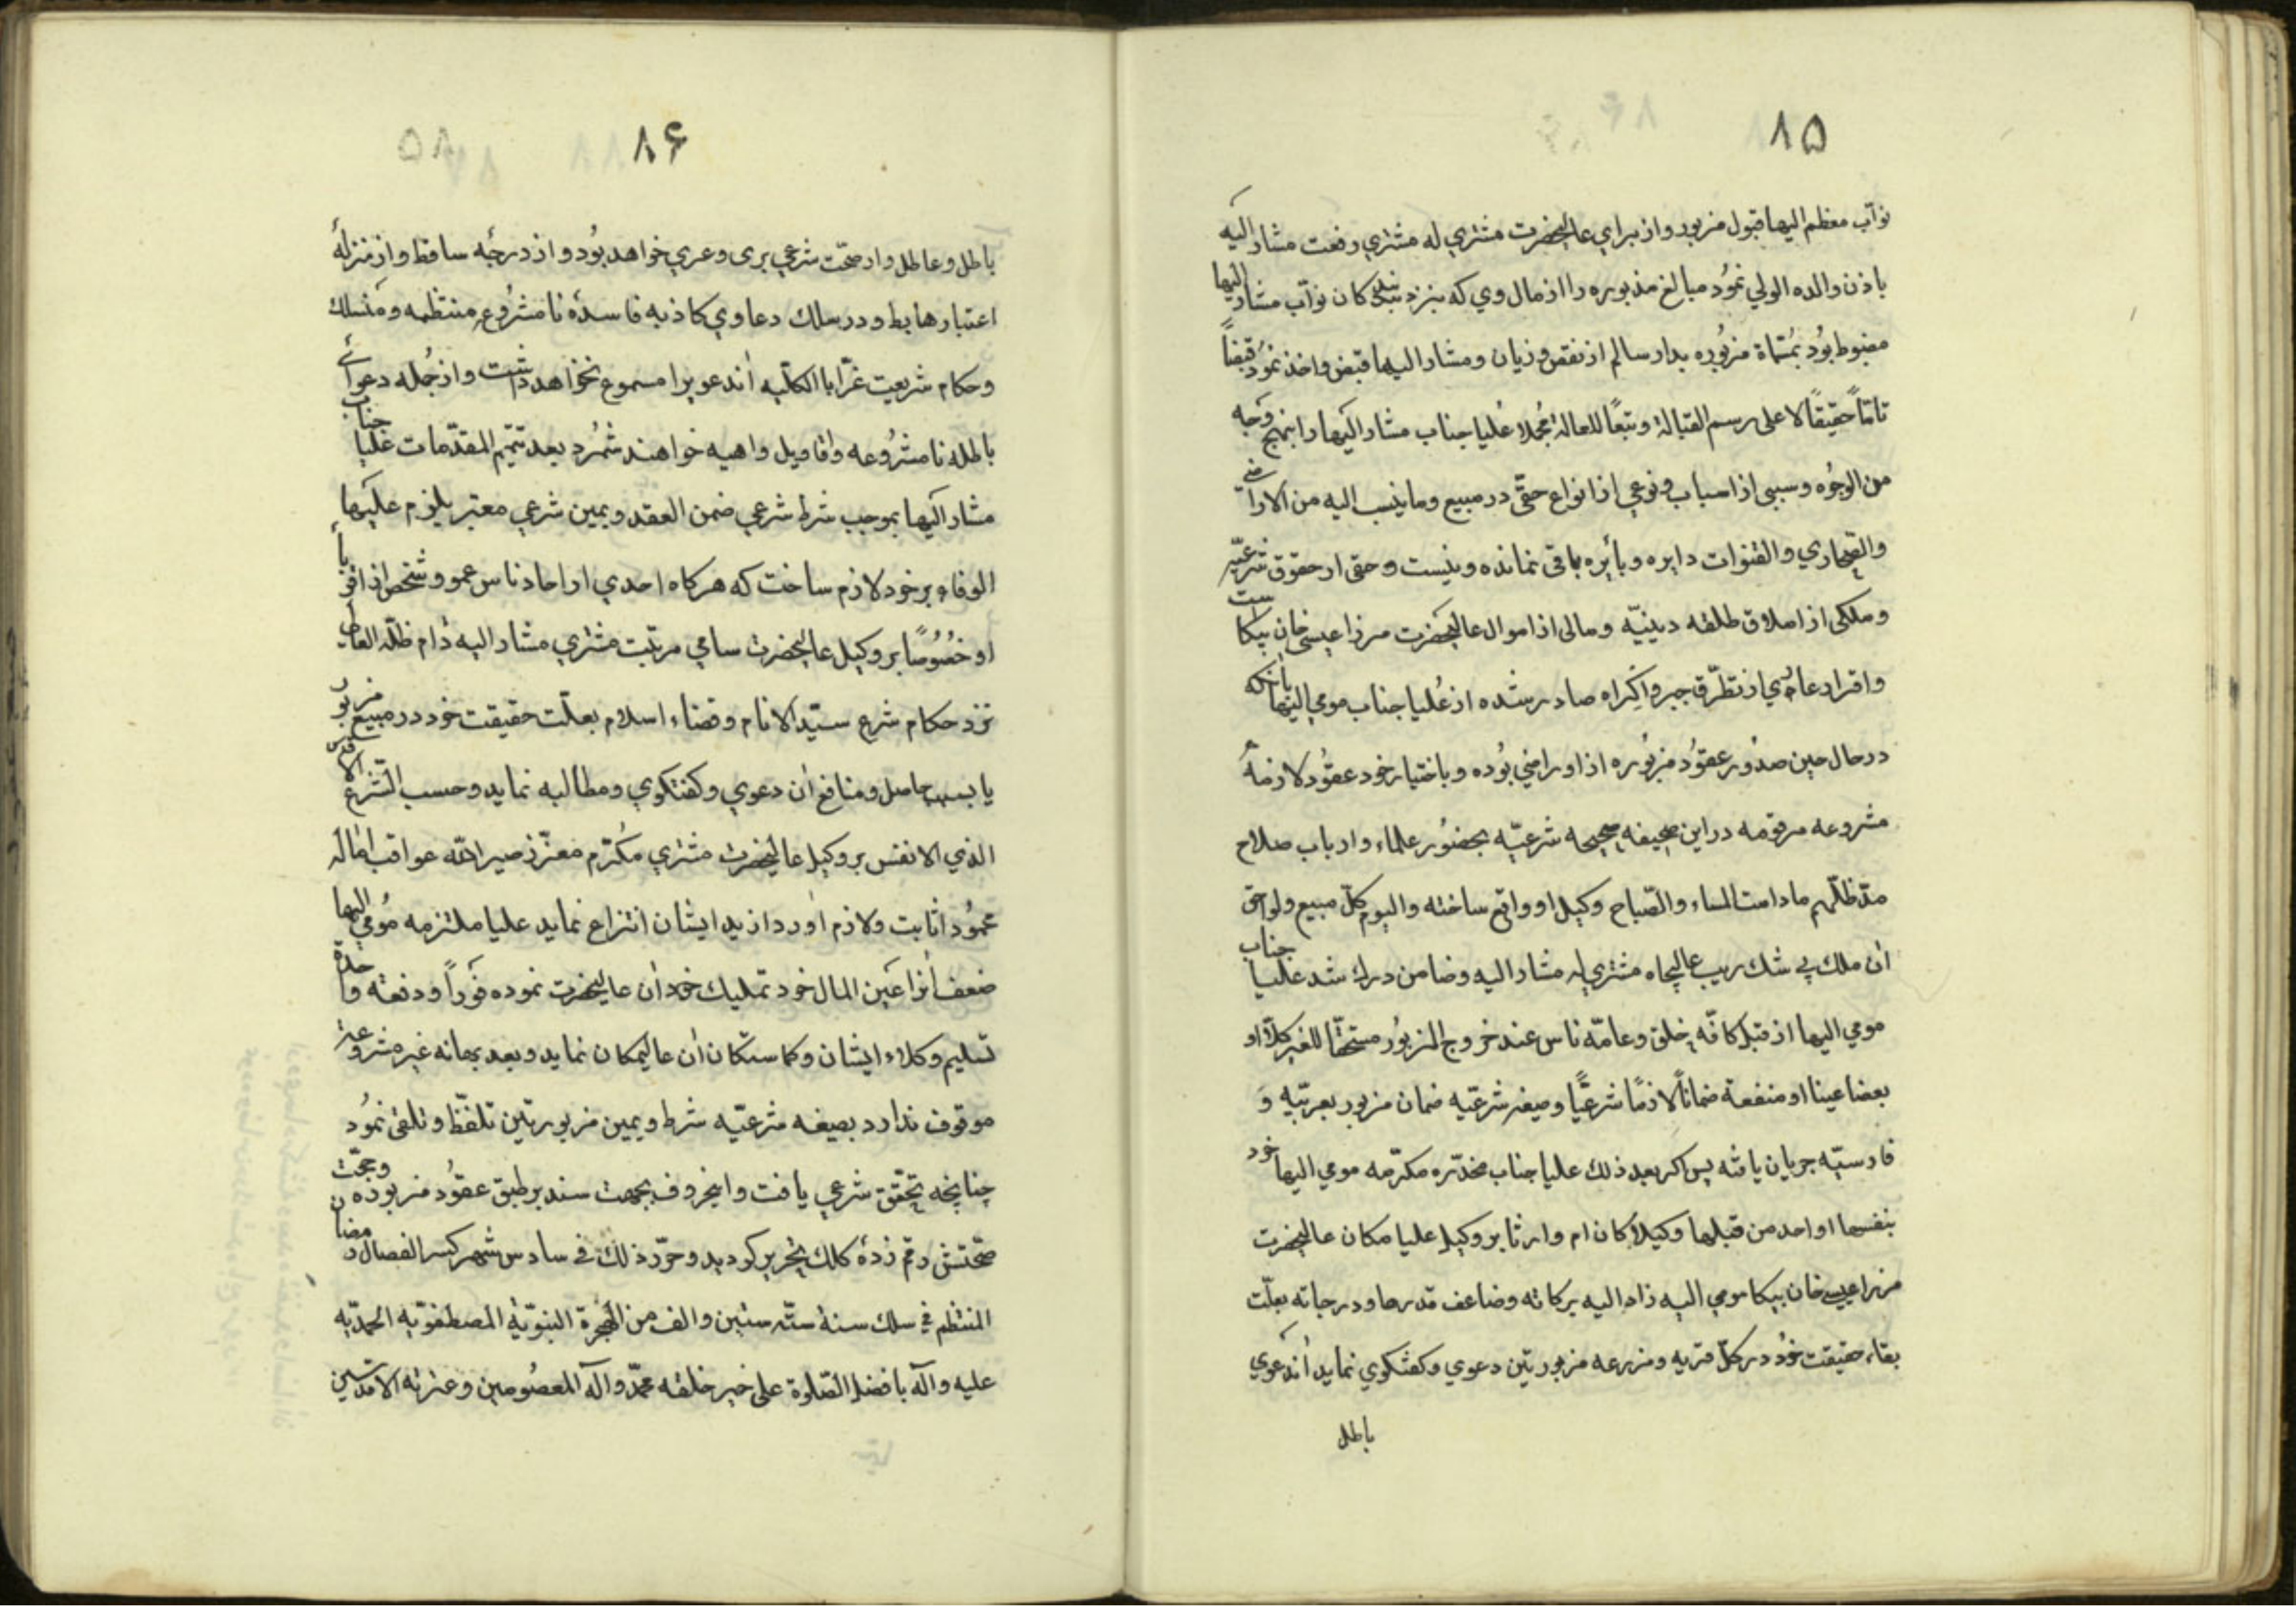 ۸۵
نواب معظم الیها قبول مزبور و از برای عالیحضرت مشتری له مشتری رفعت مشار الیه
باذن والده الولی نمود مبالغ مذبوره را از مال وی که بنزد بندکان نواب مشار الیها
مضبوط بود بمسماة مزبوره بدار سالم از نقض و زیان و مشار الیها قبض و اخذ نمود قبضاً
تامّاً حقیقاً لا علی رسم القبالة و تبعاً للعالة مجملا علیا جناب مشار الیها را بنهج وجه
من الوجوه و سببی از اسباب و نوعی از انواع حقّی در مبیع و ما ینسب الیه من الاراضی
والصحاری والقنوات دایره و بائره باقی نمانده و نیست و حقی از حقوق شرعیه
و ملکی از املاق طلقه دینیّه و مالی از اموال عالیحضرت مرزا عیسی خان بیکا ست
و اقرار عاری از تطرّق جبر و اکراه صادر شده از علیا جناب مومی الیها بانکه
در حال حین صدور عقود مزبوره از او راضی بوده و باختیار خود عقود لازمهٔ
مشروعه مرقومه در این صحیفه صحیحه شرعیّه بحضور علماء و ارباب صلاح
مدّ ظلّهم ما دامت المساء والصّباح وکیل او واقع ساخته والیوم کلّ مبیع و لواحق
ان ملک بی شک ریب عالیجاه مشتری له مشار الیه و ضامن درک شد علیا جناب
مومی الیها از قبل کافّه خلق و عامّه ناس عند خروج المزبور مستحقّا للغیر کلّا او
بعضا عینا او منفعة ضماناً لازمًا شرعیًّا و صیغه شرعیّه ضمان مزبور بعربیّه وَ
فارسیّه جریان یافته پس اکر بعد ذلک علیا جناب مخدّره مکرّمه مومی الیها خود
بنفسها او احد من قبلها وکیلا کان ام وارثا بر وکیل علیا مکان عالیحضرت
مرزا عیسی خان بیکا مومی الیه زاد الیه برکاته و ضاعف قدرها و درجاته بعلّت
بقاء حقیقت خود در کلّ قریه و مزرعه مزبورتین دعوی و کفتکوی نماید اندعوی
باطل
۸۶
باطل و عاطل و از صحّت شرعی بری و عری خواهد بود و از درجه ساقط و از منزلهٔ
اعتبار هابط و در سلک دعاوی کاذبه فاسدهٔ نامشروع منتظمه و منسلک
و حکام شریعت غرّا با الکلّیه اندعویرا مسموع نخواهد داشت و از جمله دعوائے
باطله نامشروعه و اقاویل واهیه خواهند شمرد بعد تتمّیم المقدّمات علیا جناب
مشار الیها بموجب شرط شرعی ضمن العقد و یمین شرعی معتبر یلزم علیها
الوفاء بر خود لازم ساخت که هرکاه احدی از احاد ناس عمو و شخص از اقربا
او خصوصًا بر وکیل عالیحضرت سامی مرتبت مشتری مشار الیه دام ظلّه العالی
نزد حکام شرع سیّد الانام و قضاء اسلام بعلّت حقیقت خود در مبیع مزبور
یا بسبب حاصل و منافع ان دعوی و کفتکوی و مطالبه نماید و حسب الشّرع الاقدس
الذی الانفس بر وکیل عالیحضرت مشتری مکرّم معزّز صیر الله عواقب اماله
محمودا ثابت و لازم اورد از ید ایشان انتزاع نماید علیا ملتزمه مومی الیها
ضعف انرا عین المال خود تملیک خود ان عالیحضرت نموده فوراً و دفعته واحدة
تسلیم وکلاء ایشان و کماستکان ان عالیمکان نماید و بعد بهانه غیر مشروعه
موقوف ندارد بصیغه شرعیّه شرط و یمین مزبورتین تلفّظ و تلقی نمود
چنانچه تحقّق شرعی یافت و اینحروف بجهت سند بر طبق عقود مزبوده و حجّت
صحّتش رقم زدهٔ کلک تحریر کردید و حرّر ذلک فی سادس شهر کسر الفصال رمضان
المنتظم فی سلک سنة ستّه ستین والف من الهجرة النبویّة المصطفویّه المحمدیّه
علیه وآله بافضل الصّلوة علی خیر خلقه محمّد وآله المعصومین وعترته الاقدسین